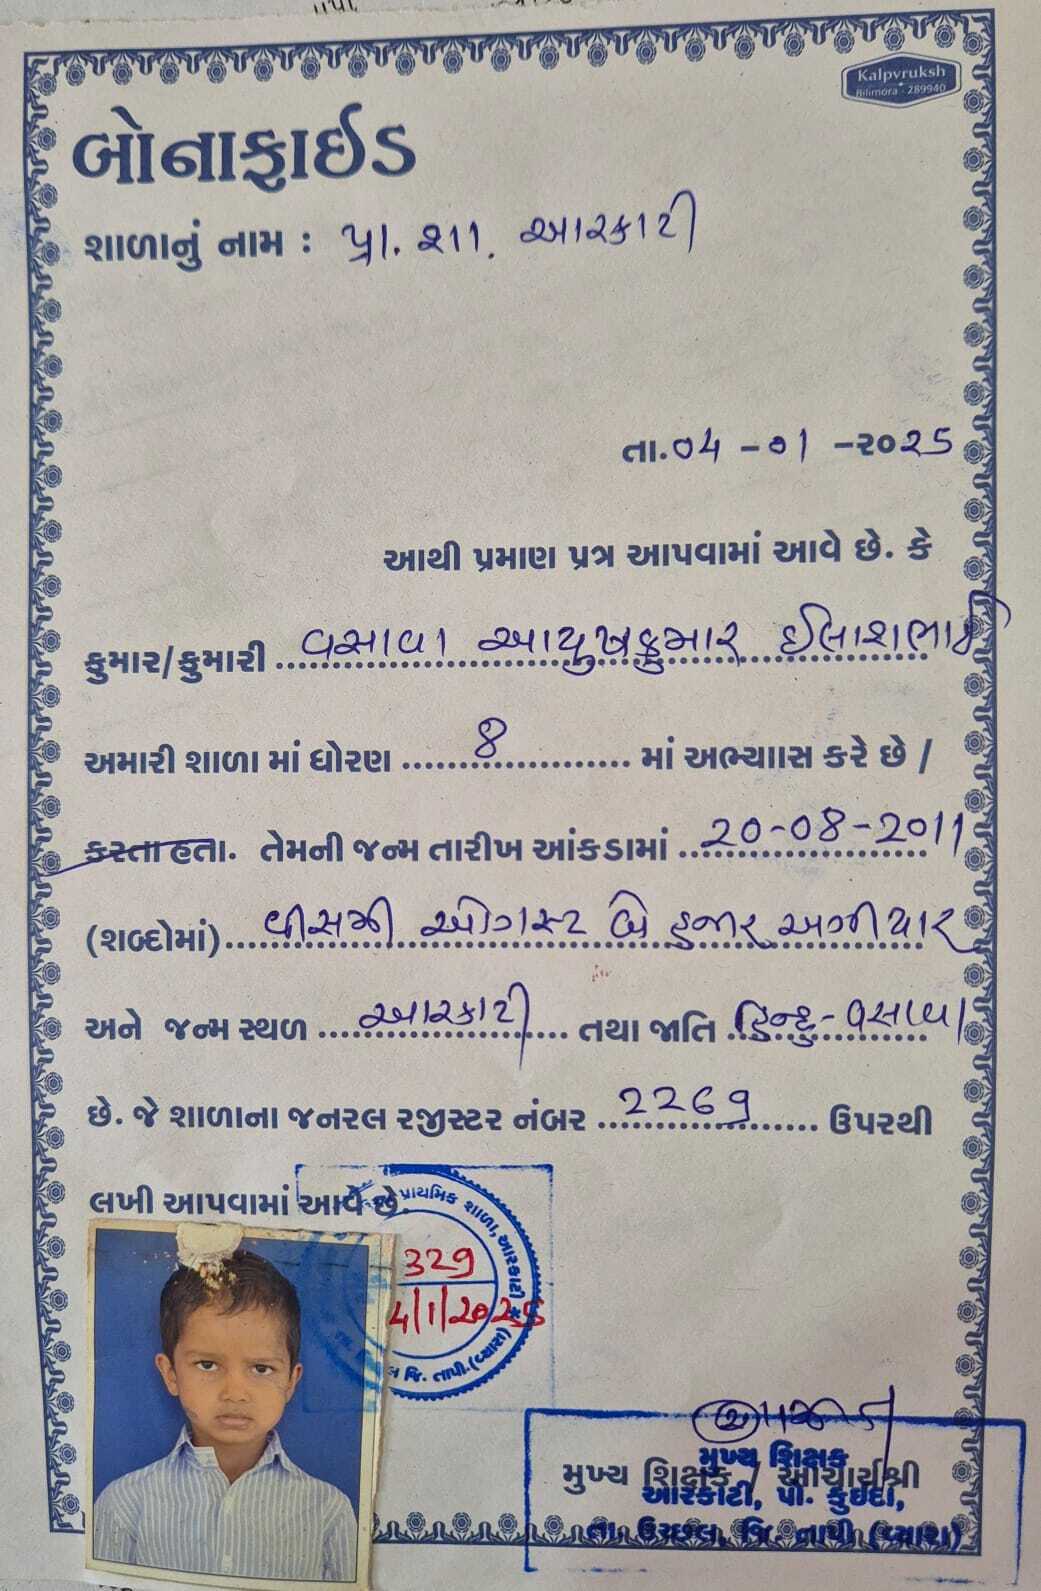 Kalpvruksh
Bilimora - 289940
બોનાફાઈડ
શાળાનું નામ : પ્રા. શા. આરકાટી
તા.૦4 -૦1 -૨૦25
આથી પ્રમાણ પત્ર આપવામાં આવે છે. કે
કુમાર/કુમારી વસાવા આયુષકુમાર ઈલાશભાઈ
અમારી શાળા માં ધોરણ 8 માં અભ્યાાસ કરે છે /
કરતા હતા. તેમની જન્મ તારીખ આંકડામાં 20-08-2011
(શબ્દોમાં) વીસમી ઓગસ્ટ બે હજાર અગીયાર
અને જન્મ સ્થળ આરકાટી તથા જાતિ હિન્દુ-વસાવા
છે. જે શાળાના જનરલ રજીસ્ટર નંબર 2269 ઉપરથી
લખી આપવામાં આવે છે.
પ્રાથમિક શાળા, આરકાટી
329
4/1/2025
જિ. તાપી.(વ્યારા)
મુખ્ય શિક્ષક / આચાર્યશ્રી
મુખ્ય શિક્ષક
આરકાટી, પો. કુઈદા,
તા. ઉચ્છલ, જિ. તાપી (વ્યારા)